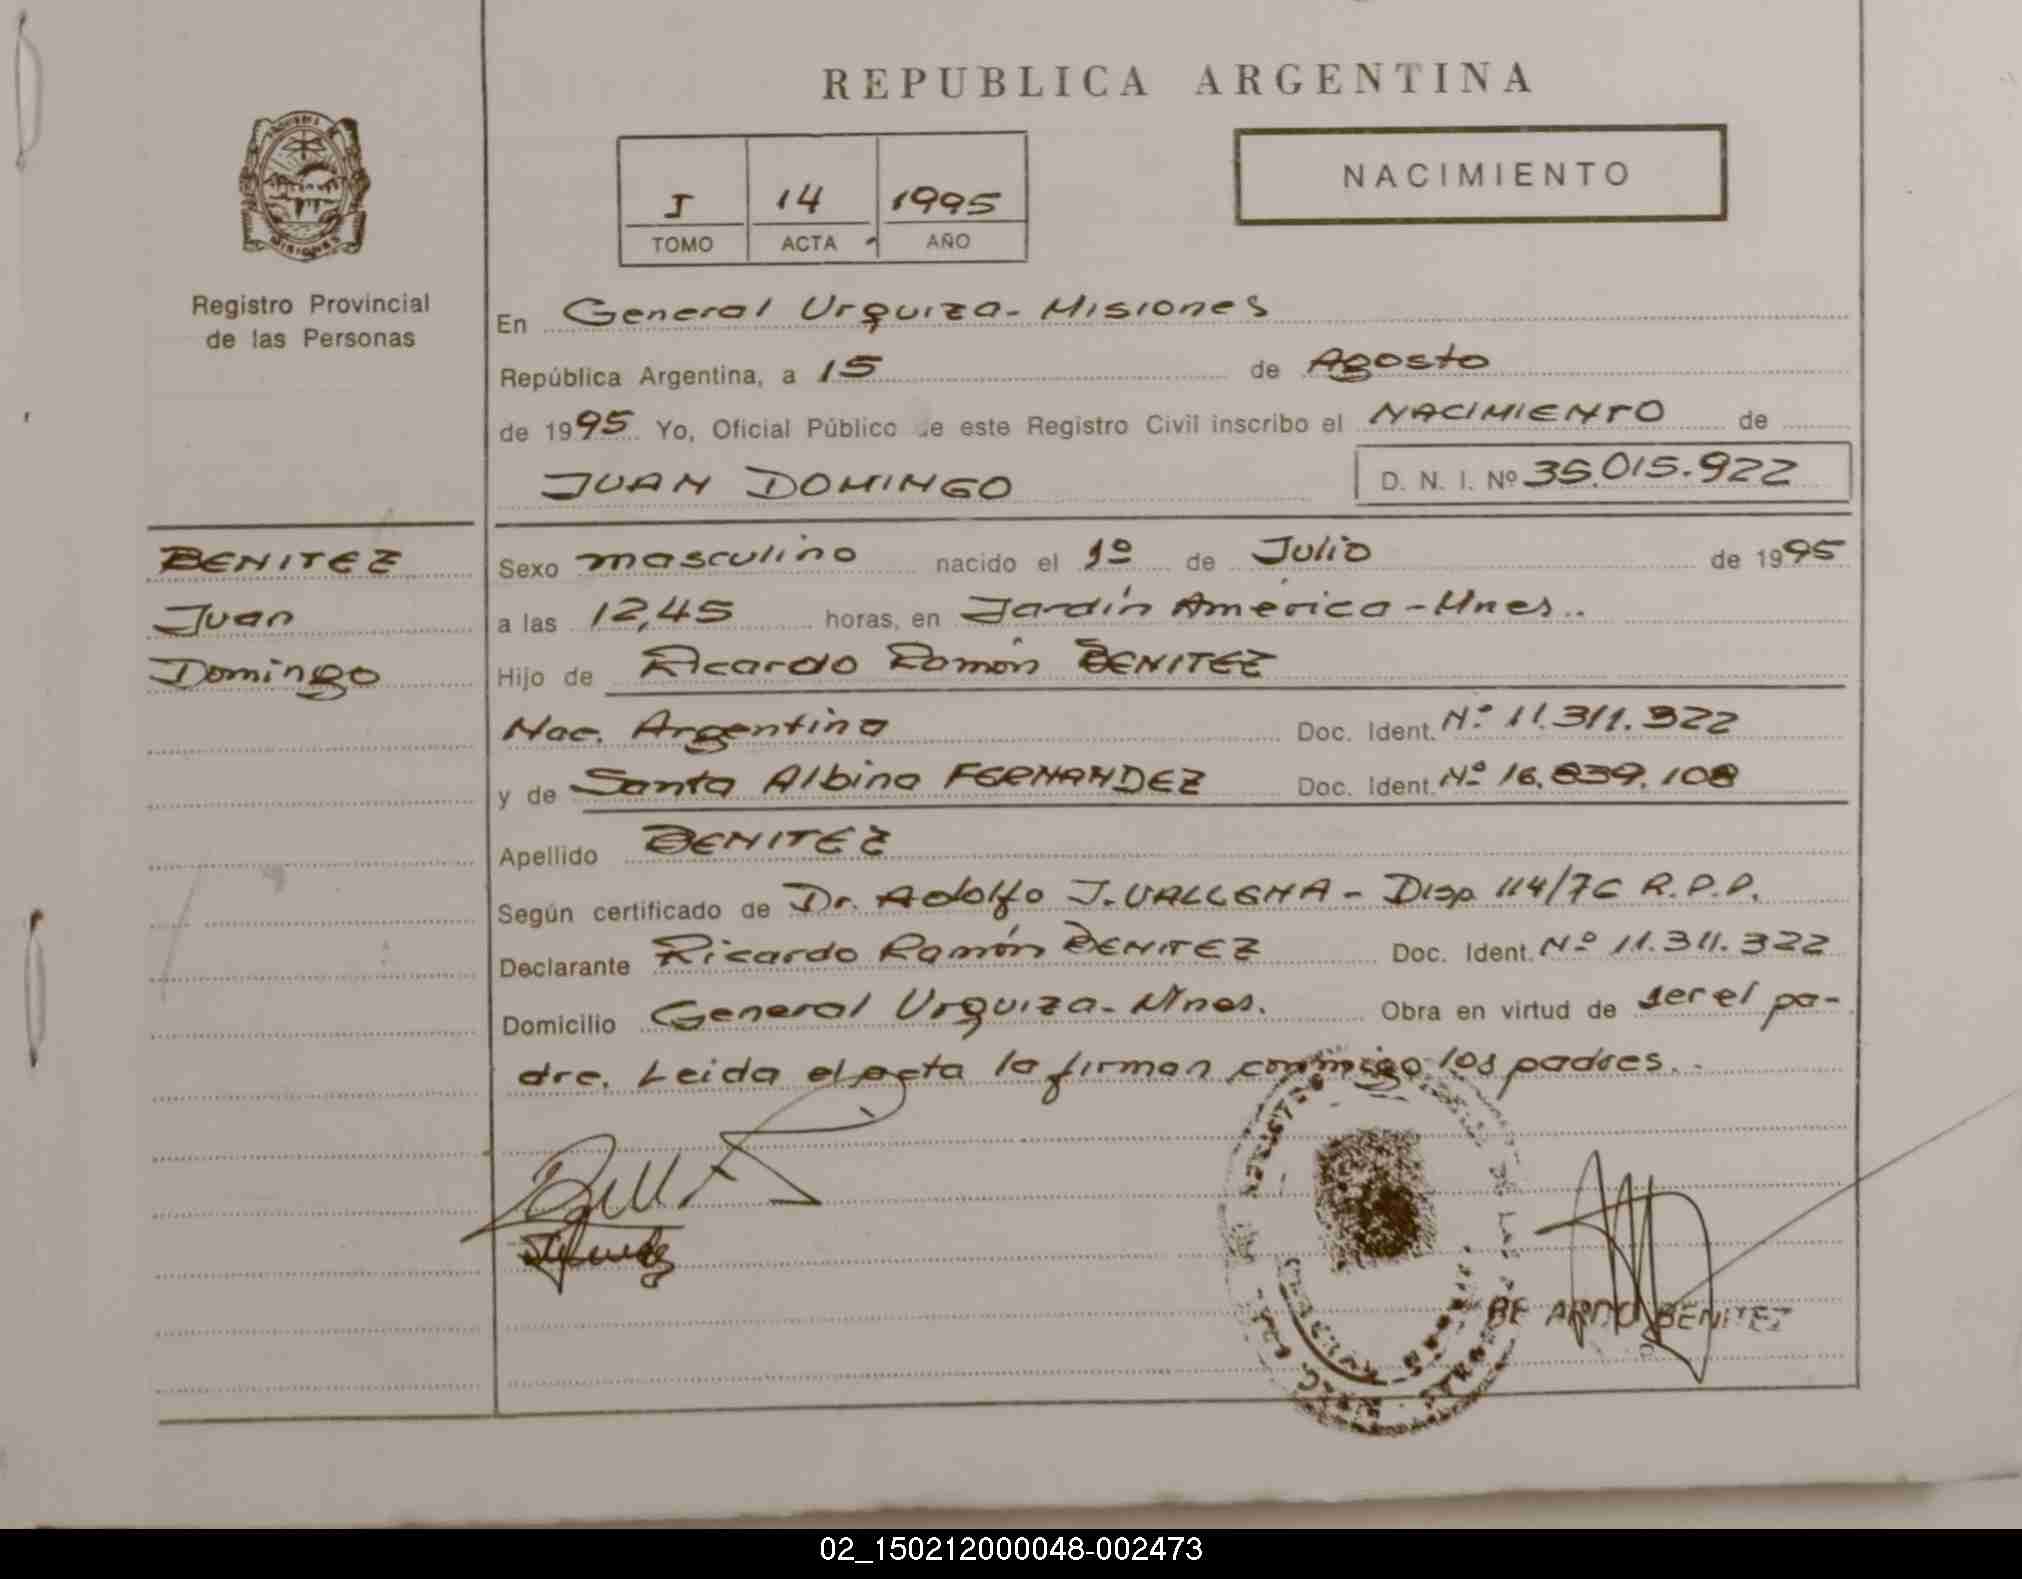 REPUBLICA ARGENTINA
NACIMIENTO
I 14 1995
TOMO ACTA AÑO
Registro Provincial
de las Personas
En General Urquiza - Misiones
República Argentina, a 15 de Agosto
de 1995 Yo, Oficial Público de este Registro Civil inscribo el NACIMIENTO de
JUAN DOMINGO D. N. I. Nº 35.015.922
BENITEZ
Juan
Domingo
Sexo masculino nacido el 1º de Julio de 1995
a las 12,45 horas, en Jardín América - Mnes..
Hijo de Ricardo Ramón BENITEZ
Nac. Argentina Doc. Ident. Nº 11.311.322
y de Santa Albina FERNANDEZ Doc. Ident. Nº 16.839.108
Apellido BENITEZ
Según certificado de Dr. Adolfo J. - Disp. 114/76 R.P.P.
Declarante Ricardo Ramón BENITEZ Doc. Ident. Nº 11.311.322
Domicilio General Urquiza - Mnes. Obra en virtud de ser el pa-
dre. Leida el acta la firman conmigo los padres..
BENITEZ
02_150212000048-002473